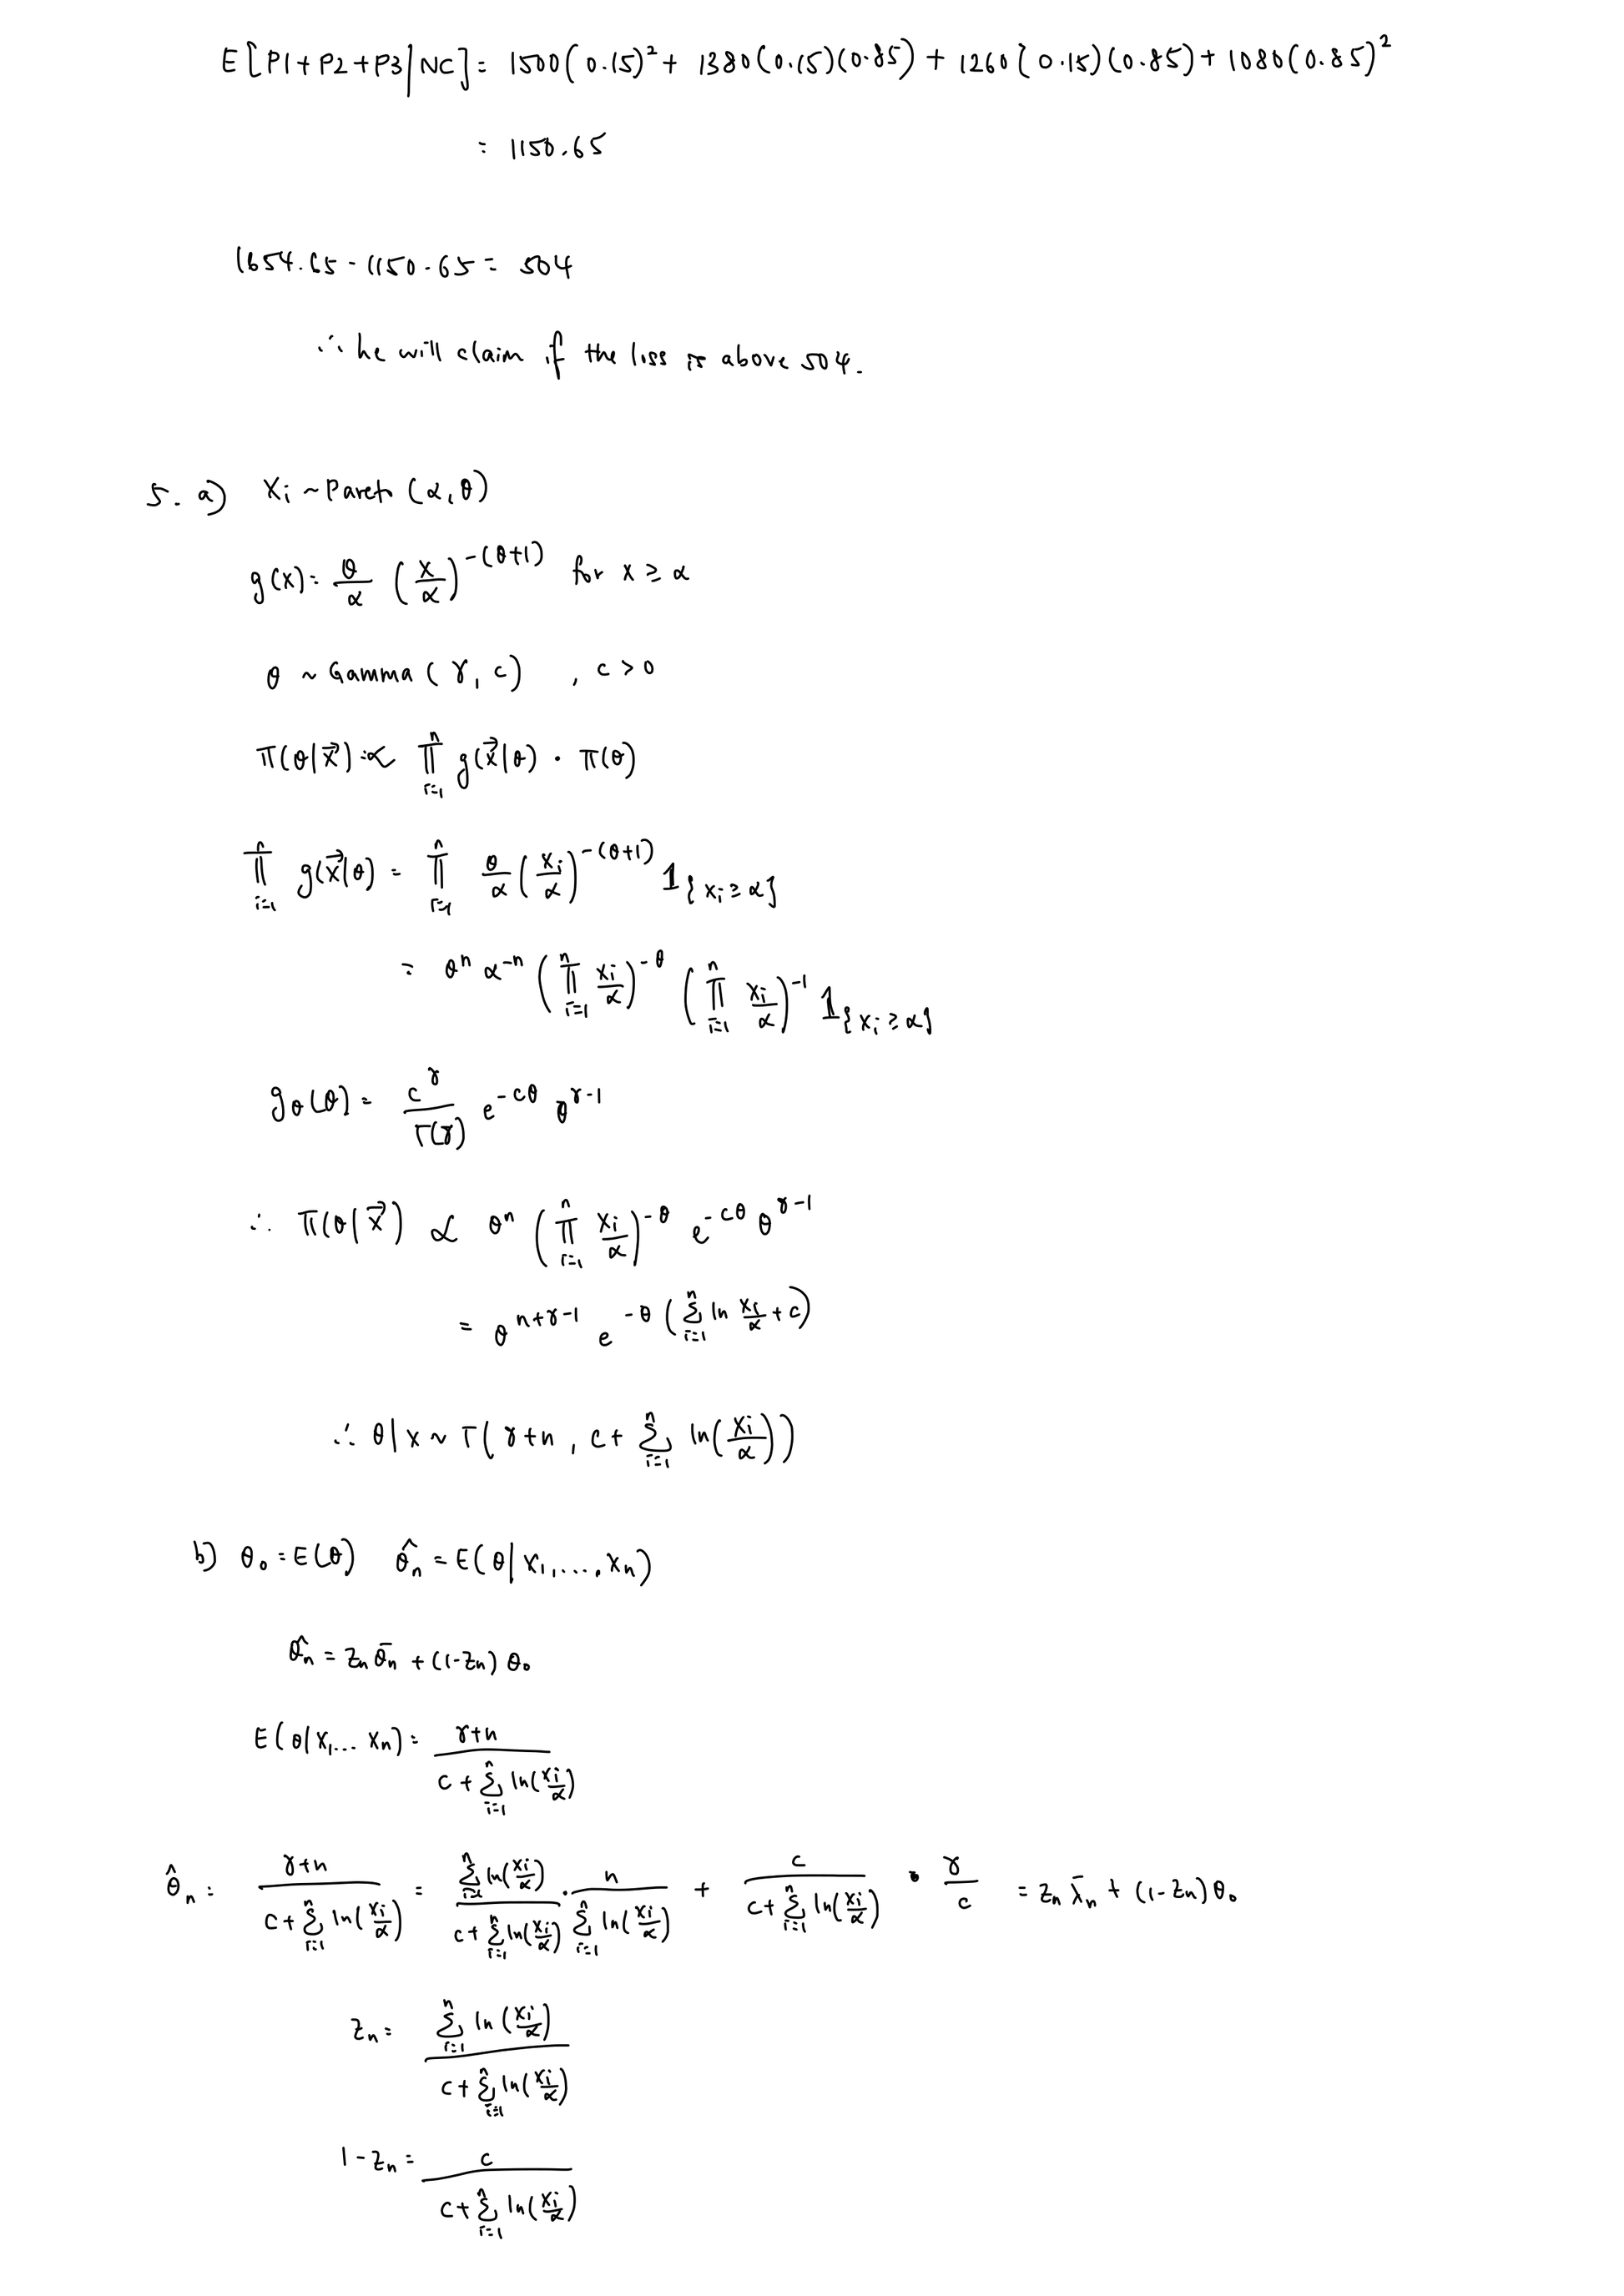 E[P1+P2+P3|NC] = 1500(0.15)² + 1380(0.15)(0.85) + 1260(0.15)(0.85) + 1080(0.85)²
= 1150.65
1654.65 - 1150.65 = 504
∴ he will claim if the loss is above 504.
5. a) Xi ~ Pareto (α, θ)
g(x) = θ/α (x/α)^-(θ+1) for x ≥ α
θ ~ Gamma (γ, c) , c > 0
π(θ|x⃗) ∝ ∏_{i=1}^n g(x⃗|θ) · π(θ)
∏_{i=1}^n g(x⃗|θ) = ∏_{i=1}^n θ/α (xi/α)^-(θ+1) 1_{xi ≥ α}
= θ^n α^-n (∏_{i=1}^n xi/α)^-θ (∏_{i=1}^n xi/α)^-1 1_{xi ≥ α}
gθ(θ) = c^γ/Γ(γ) e^-cθ θ^γ-1
∴ π(θ|x⃗) ∝ θ^n (∏_{i=1}^n xi/α)^-θ e^-cθ θ^γ-1
= θ^n+γ-1 e^-θ(∑_{i=1}^n ln xi/α + c)
∴ θ|x ~ Γ(γ+n , c + ∑_{i=1}^n ln(xi/α))
b) θ₀ = E(θ) θ̂n = E(θ|x₁, ..., xn)
θ̂n = zn θ̄n + (1-zn) θ₀
E(θ|x₁... xn) = (γ+n)/(c + ∑_{i=1}^n ln(xi/α))
θ̂n = (γ+n)/(c + ∑_{i=1}^n ln(xi/α)) = (∑_{i=1}^n ln(xi/α))/(c + ∑_{i=1}^n ln(xi/α)) · n/(∑_{i=1}^n ln(xi/α)) + c/(c + ∑_{i=1}^n ln(xi/α)) · γ/c = zn λ̄n + (1-zn) θ₀
zn = (∑_{i=1}^n ln(xi/α))/(c + ∑_{i=1}^n ln(xi/α))
1 - zn = c/(c + ∑_{i=1}^n ln(xi/α))